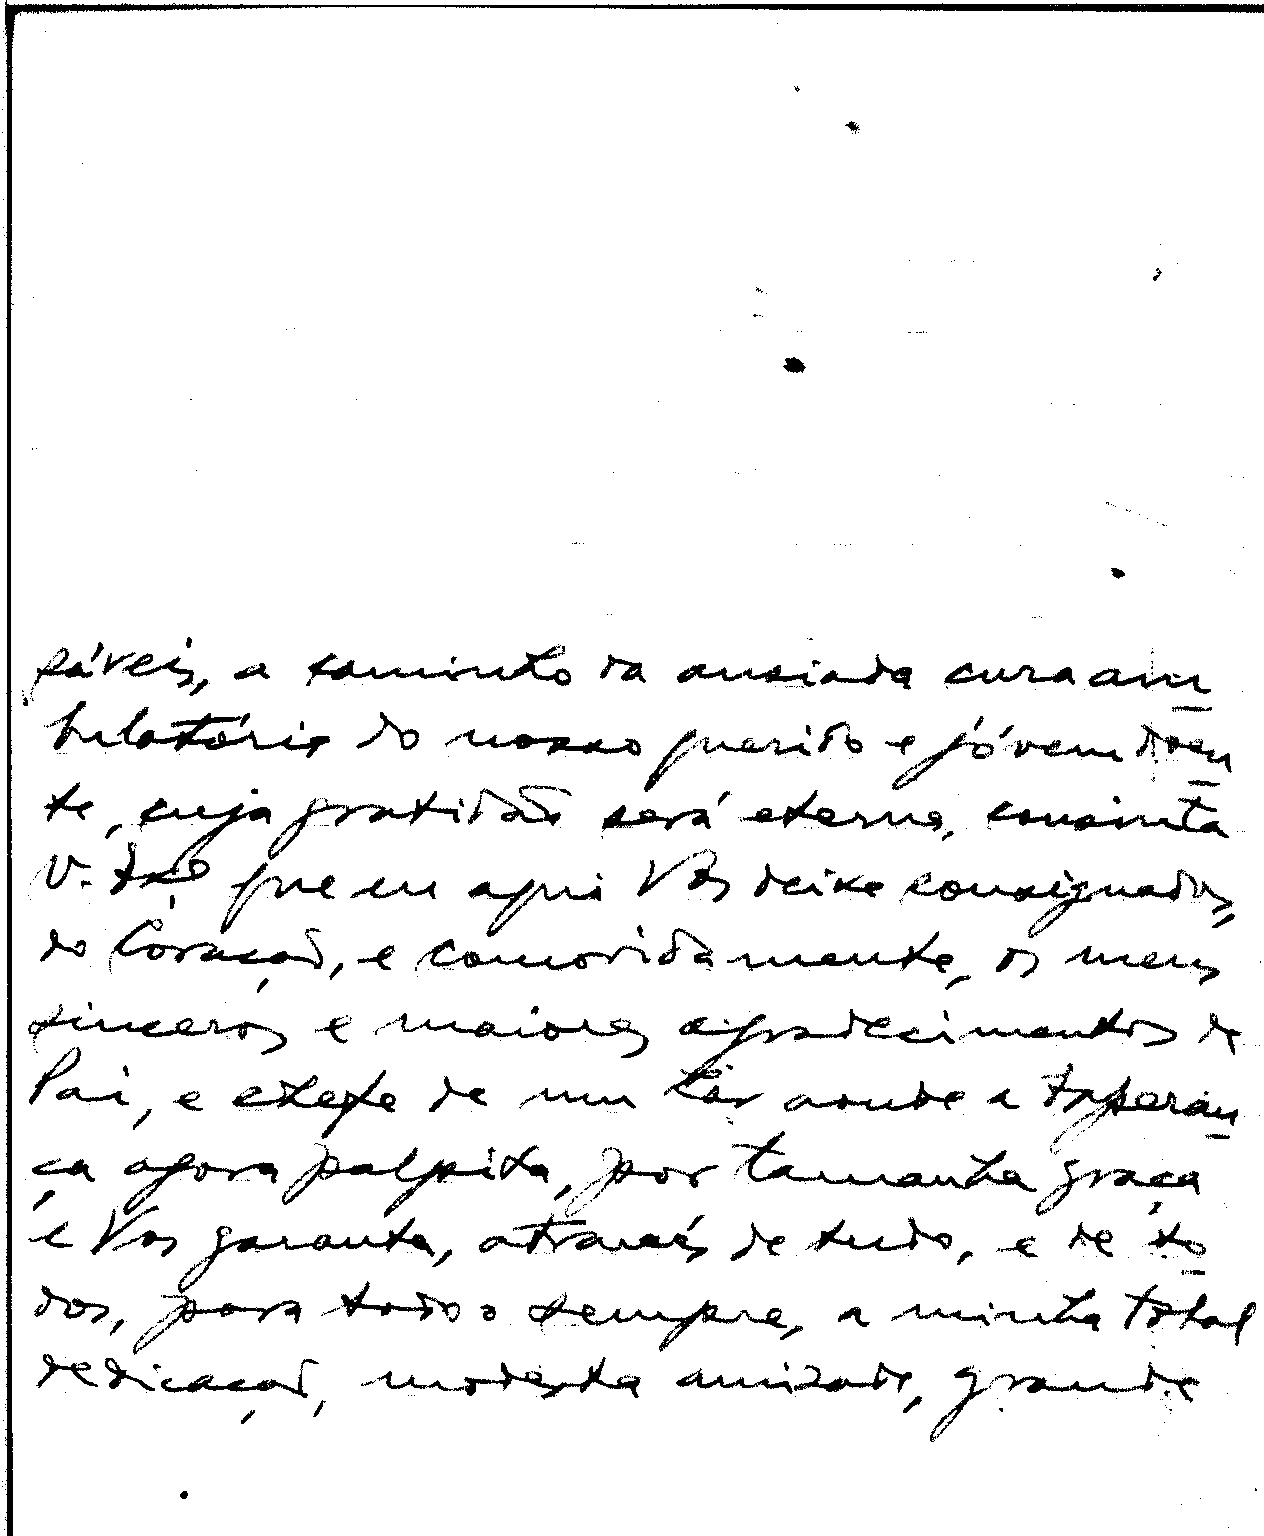 sáveis, a caminho da ansiada cura am
bulatória do nosso querido e jóvem doen
te, cuja gratidão será eterna, consinta
V. Exª que eu aqui Vos deixe consignados,
do Coração, e comovidamente, os meus
sinceros e maiores agradecimentos de
Pai, e chefe de um Lar aonde a Esperan
ça agora palpita, por tamanha graça
e Vos garanta, através de tudo, e de to
dos, para todo o sempre, a minha total
dedicação, modesta amizade, grande